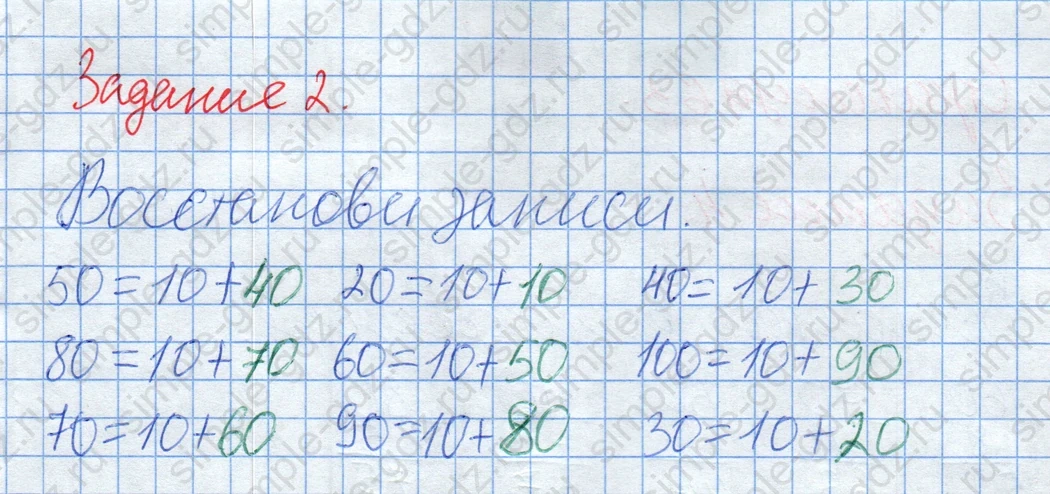 Задание 2.
Восстанови записи.
50=10+40 20=10+10 40=10+30
80=10+70 60=10+50 100=10+90
70=10+60 90=10+80 30=10+20
simple-gdz.ru